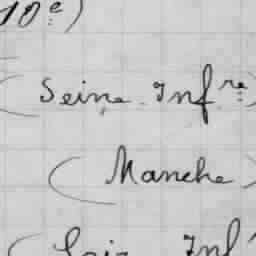 10e)
(Seine Infre)
(Manche)
(Loir Inf